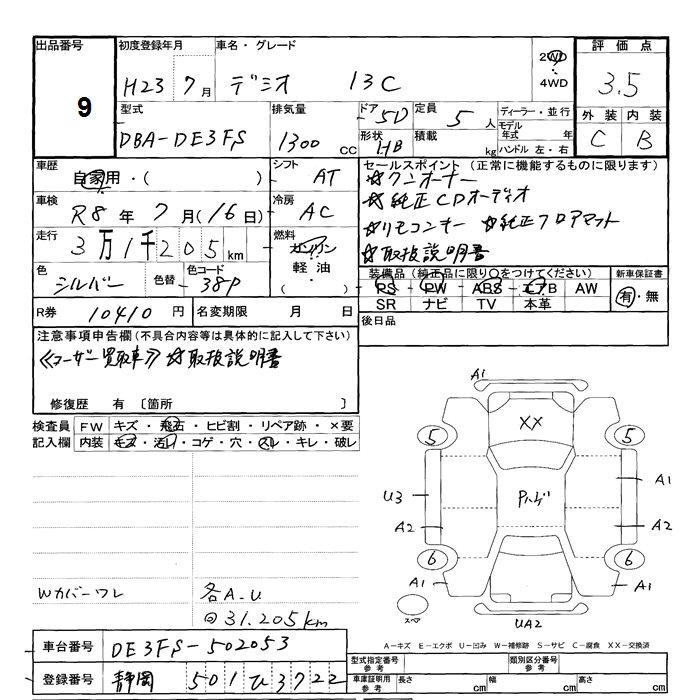 出品番号 9
初度登録年月 H23 7月
車名・グレード デミオ 13C
2WD・4WD
評価点 3.5
外装 内装
C B
型式 DBA-DE3FS
排気量 1300 CC
ドア 5D
形状 HB
定員 5人
積載 kg
ディーラー・並行
モデル年式 年
ハンドル 左・右
車歴 自家用・( )
シフト AT
車検 R8年 7月(16日)
冷房 AC
走行 3万1千205km
燃料 ガソリン
軽油・( )
色 シルバー 色替 色コード 38P
セールスポイント(正常に機能するものに限ります)
☆ワンオーナー
☆純正CDオーディオ
☆リモコンキー ☆純正フロアマット
☆取扱説明書
装備品(純正品に限り〇をつけてください) 新車保証書
PS PW ABS エアB AW
SR ナビ TV 本革
有・無
R券 10410円 名変期限 月 日
後日品
注意事項申告欄(不具合内容等は具体的に記入して下さい)
≪ユーザー買取車≫ ☆取扱説明書
修復歴 有 〔箇所 〕
検査員記入欄
FW キズ・飛石・ヒビ割・リペア跡・×要
内装 キズ・汚れ・コゲ・穴・スレ・キレ・破レ
A1
XX
5 5
A1
U3 Pハゲ
A2 A2
6 6
A1 A1
スペア
UA2
Wカバーワレ
各A.U
@31.205km
A-キズ E-エクボ U-凹み W-補修跡 S-サビ C-腐食 XX-交換済
車台番号 DE3FS-502053
登録番号 静岡 501 ひ 3722
型式指定番号 参考 類別区分番号 参考
車庫証明用 参考 長さ cm 幅 cm 高さ cm